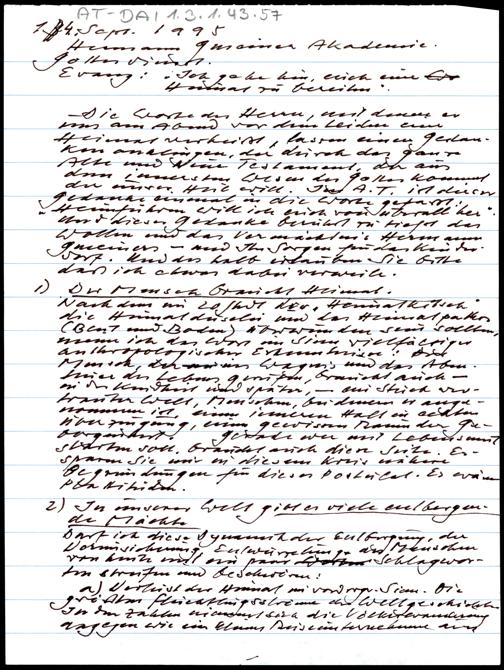 AT-DA 1.3.1.43.57
14. Sept. 1995
Hermann Gmeiner Akademie.
Gottesdienst.
Evang: "Ich gehe hin, euch eine
Heimat zu bereiten."
Die Worte des Herrn, mit denen er
uns am Abend vor dem Leiden eine
Heimat verheißt, lassen einen Gedan-
ken anklingen, der durch das ganze
Alte und Neue Testament, der aus
dem innersten Wesen des Gottes kommt
der unser Heil will. Im A.T. ist dieser
Gedanke einmal in die Worte gefasst:
"Heimführen will ich euch von überall her"
Und dieser Gedanke berührt zutiefst das
Wollen und das Vermächtnis Hermann
Gmeiners – und Ihr Sorgen für das Kinder-
dorf. Und deshalb erlauben Sie bitte
daß ich etwas dabei verweile.
1) Der Mensch braucht Heimat.
Nachdem im 20. Jhdt der "Heimatkitsch"
die Heimatduselei und das Heimatpathos
(Blut und Boden) überwunden sein sollten,
meine ich das Wort im Sinn vielfältiger
anthropologischer Erkenntnisse: Der
Mensch, der Wagnis und das Aben-
teuer des Lebens braucht auch –
in der Kindheit und später, – ein Stück ver-
trauter Welt, Menschen, bei denen er ange-
nommen ist, einen inneren Halt in echten
Überzeugung, einen gewissen Raum der Ge-
borgenheit. Gerade wer mit Lebensmut
starten soll, braucht auch diese Seite. Er-
sparen Sie mir in diesem Kreis nähere
Begründungen für dieses Postulat. Es wären
Platitüden.
2) In unserer Welt gibt es viele entbergen-
de Mächte
Darf ich diese Dynamik der Entbergung, der
Vermischung Entwurzelung des Menschen
von heute mit ein paar Schlagwor-
ten streifen und beschwören:
a) Verlust der Heimat im vordergr. Sinn. Die
größten Flüchtlingsströme der Weltgeschichte
In den Zahlen nimmt sich die Völkerwanderung
dagegen wie ein kleines Reiseunternehmen aus